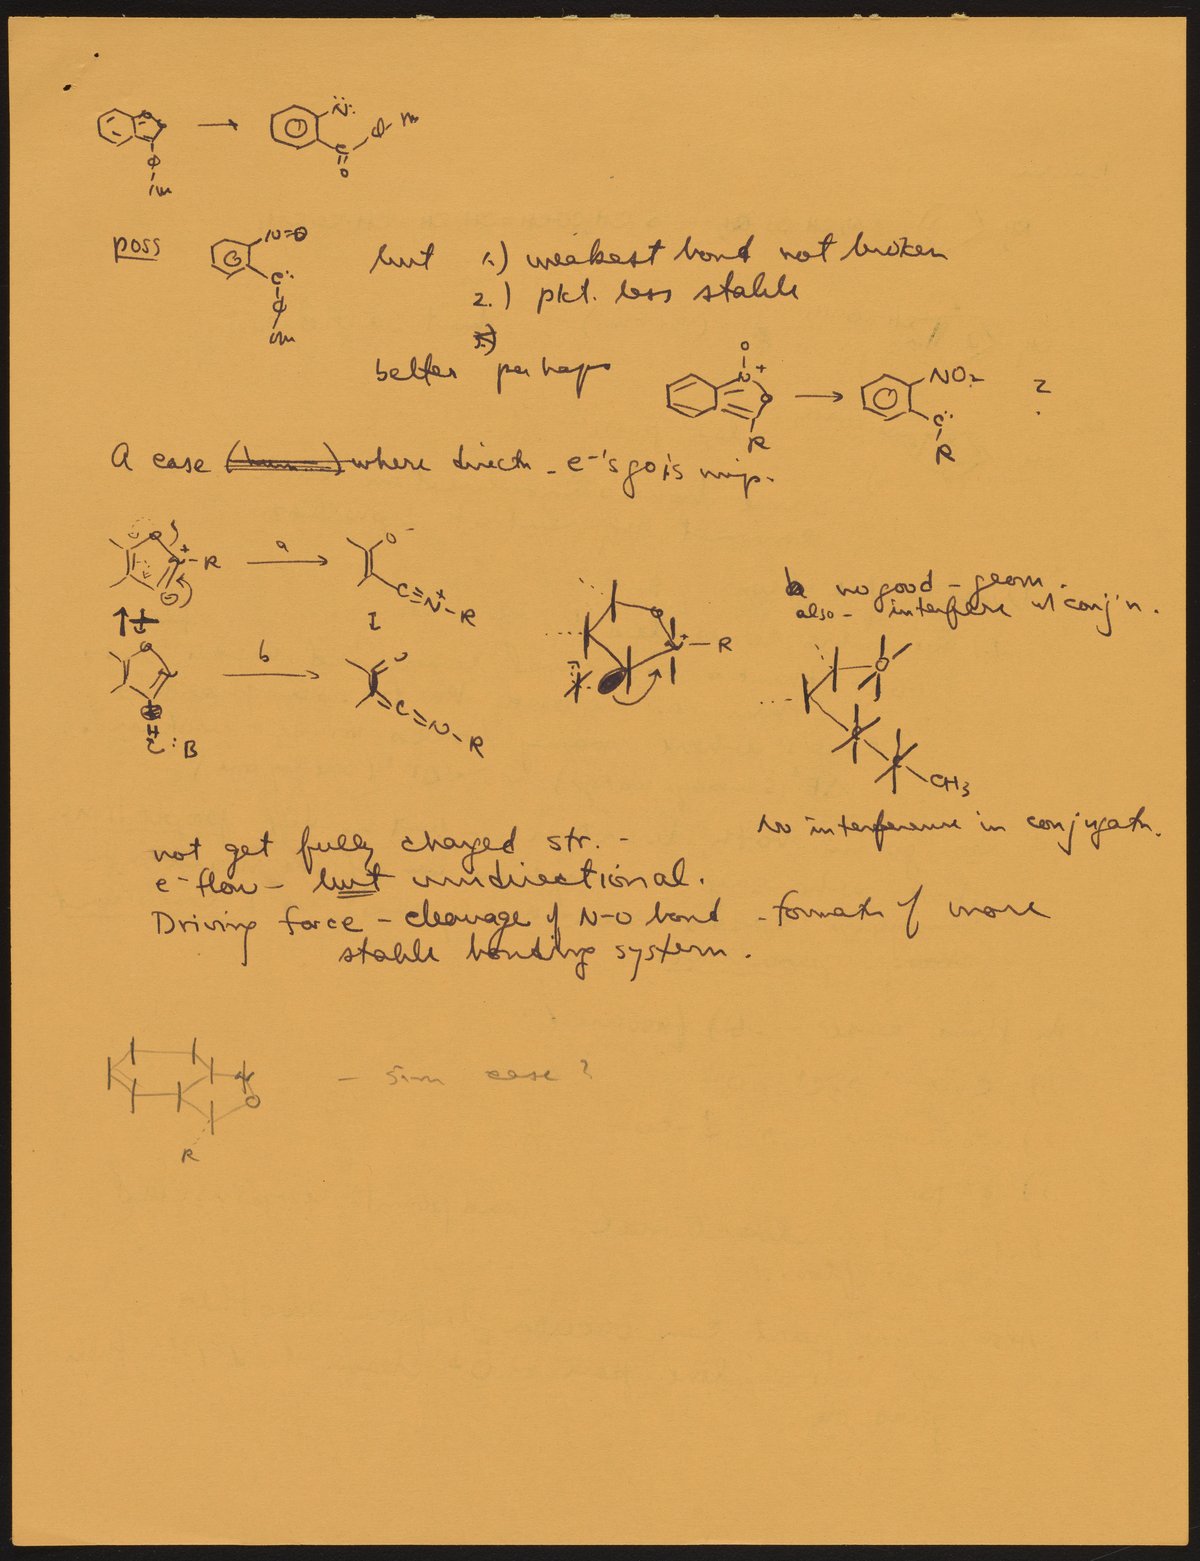 N:
C
O
poss
N=O
C:
but 1.) weakest bond not broken
2.) pkt. less stable
better perhaps
O
N+
O
R
NO2
C:
R
?
A case where directn - e-'s go is imp.
O
N+-R
a
O-
C≡N+-R
I
b no good - geom.
also - interfere w/ conj'n.
b
O
C=N-R
H
:B
O
N+-R
O
CH3
No interference in conjugatn.
not get fully charged str. -
e- flow - but unidirectional.
Driving force - cleavage of N-O bond - formatn of more
stable bonding system.
N
O
R
- Sim case?